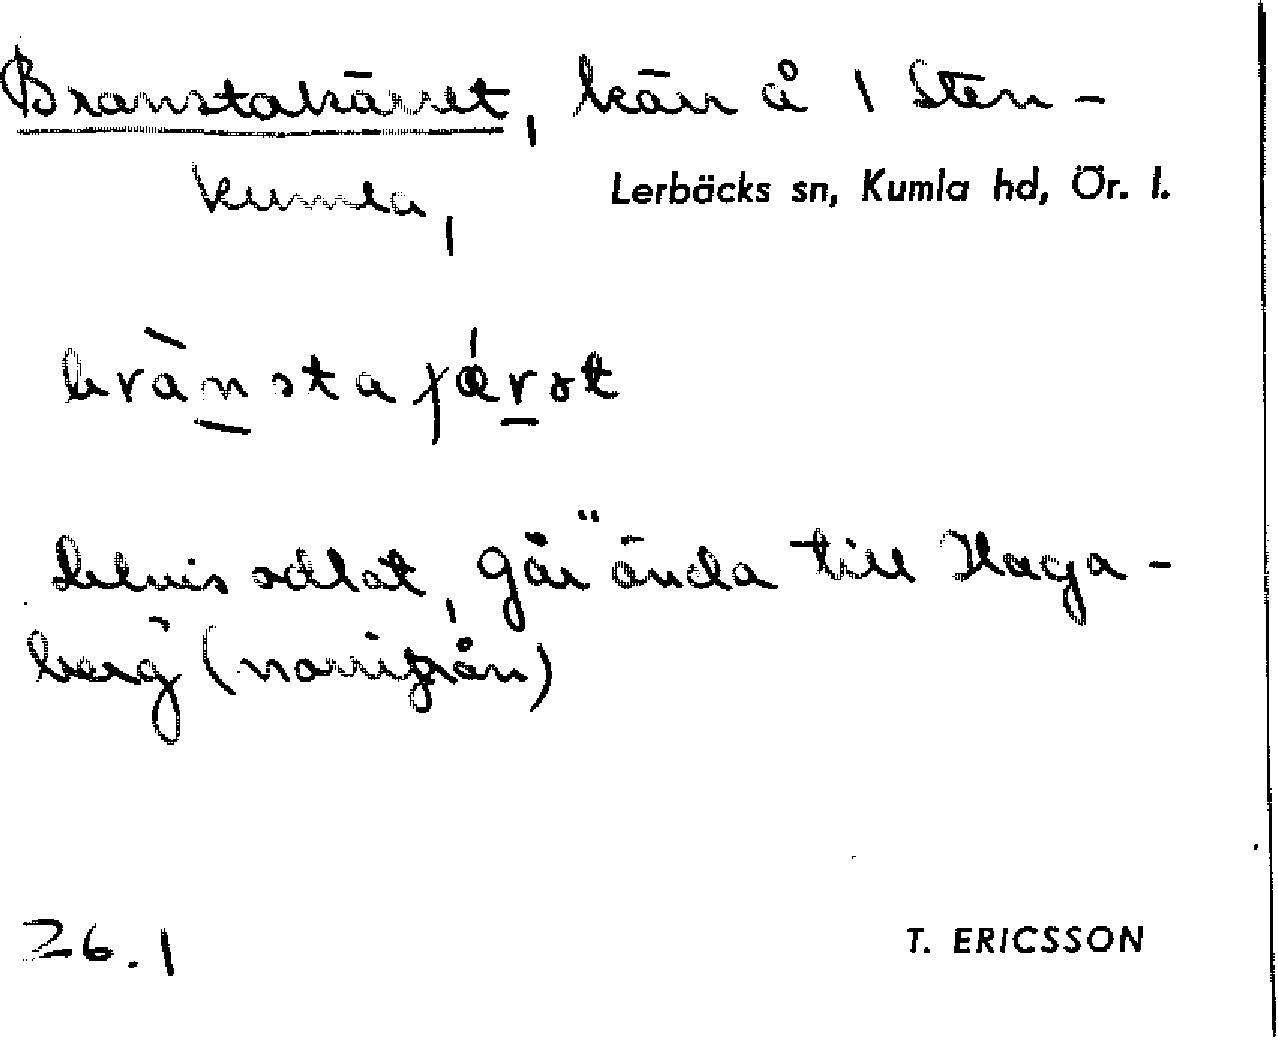 Branstakärret, kärr å 1 Sten-
kumla,
Lerbäcks sn, Kumla hd, Ör. l.
delvis odlat, går ända till Haga-
berg (norrifrån)
26.1
T. ERICSSON